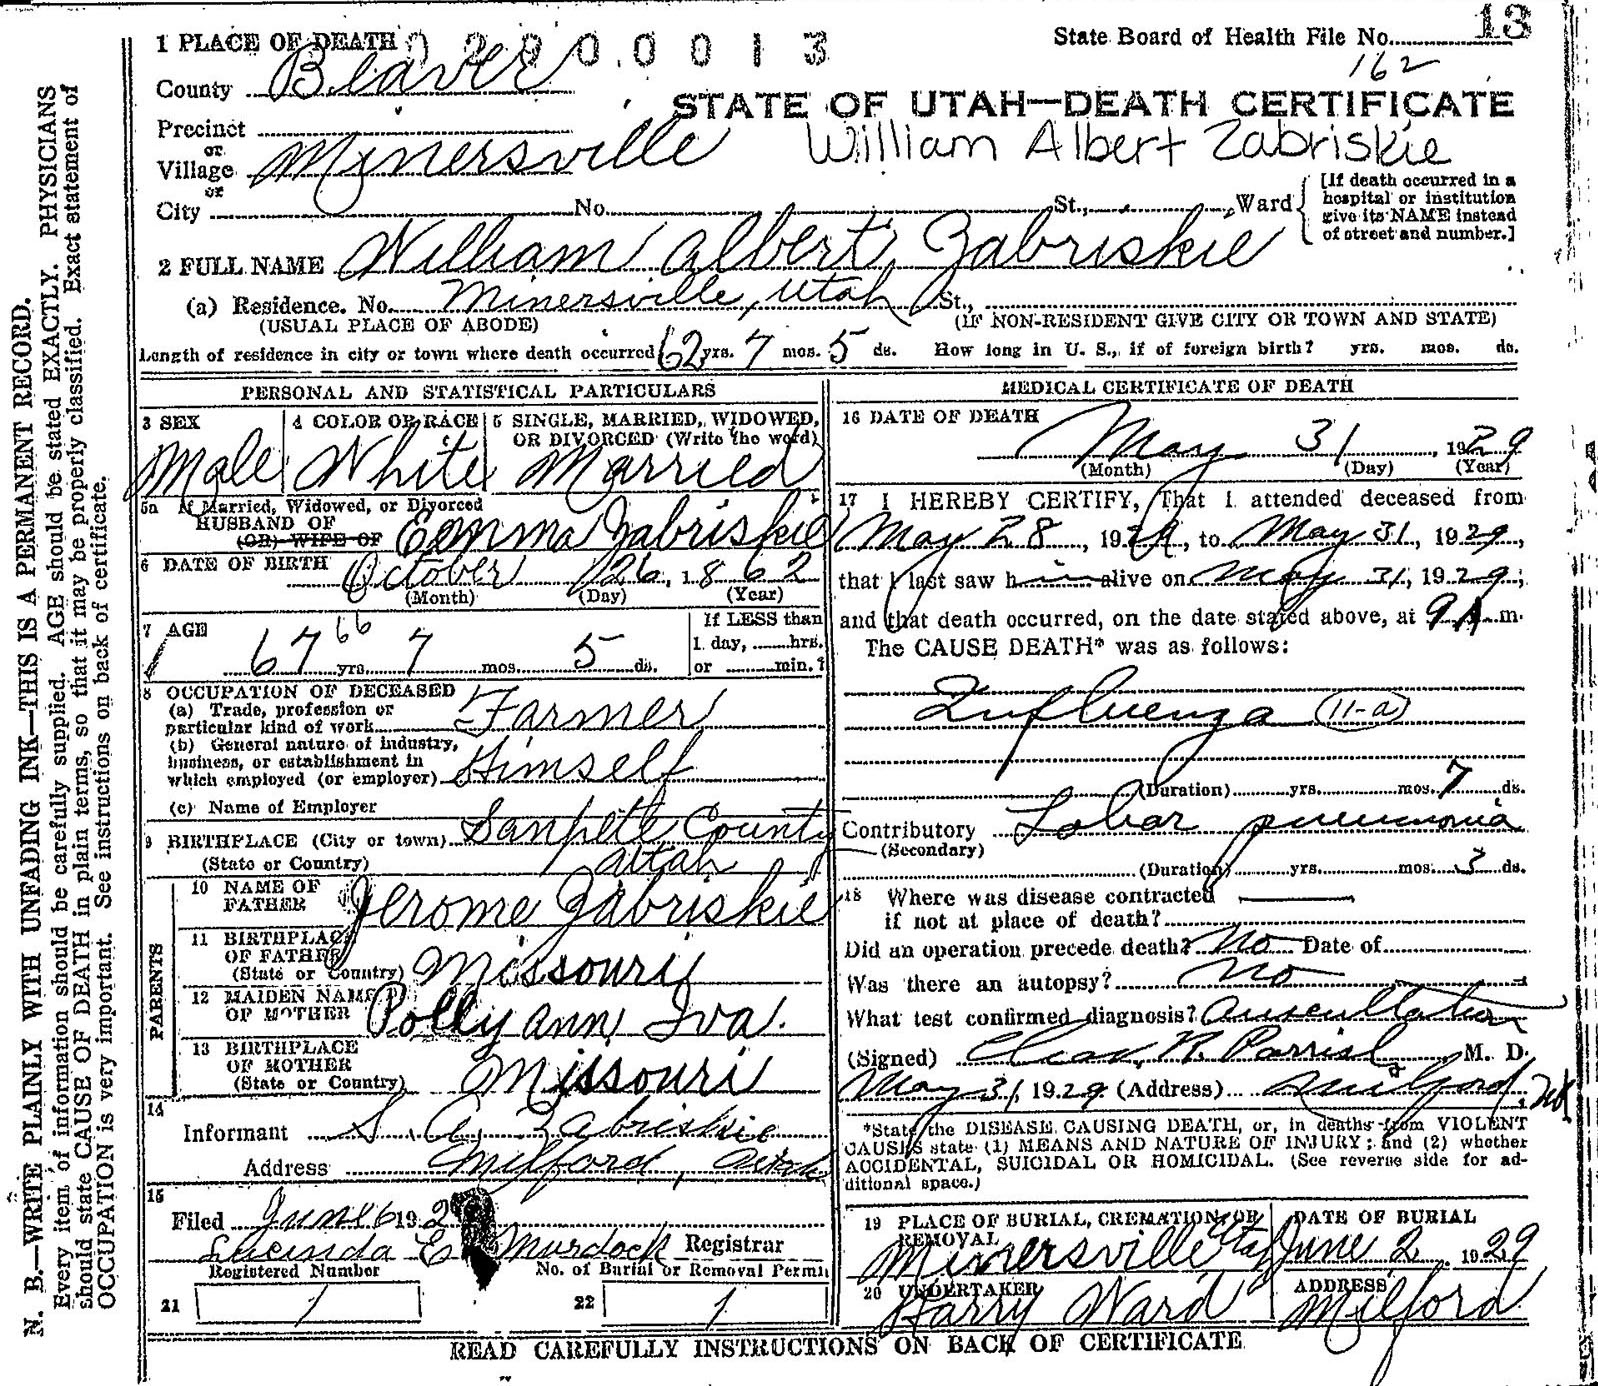 13
1 PLACE OF DEATH 0 2 9 0 0 0 1 3
State Board of Health File No.
162
County Beaver
STATE OF UTAH—DEATH CERTIFICATE
Precinct
or
William Albert Zabriskie
Village Minersville
or
City No. St., Ward
[If death occurred in a
hospital or institution
give its NAME instead
of street and number.]
2 FULL NAME William Albert Zabriskie
(a) Residence. No. Minersville, Utah St.,
(USUAL PLACE OF ABODE) (IF NON-RESIDENT GIVE CITY OR TOWN AND STATE)
Length of residence in city or town where death occurred 62 yrs. 7 mos. 5 ds. How long in U. S., if of foreign birth? yrs. mos. ds.
PERSONAL AND STATISTICAL PARTICULARS
3 SEX
Male
4 COLOR OR RACE
White
5 SINGLE, MARRIED, WIDOWED,
OR DIVORCED (Write the word)
Married
5a If Married, Widowed, or Divorced
HUSBAND OF
(OR) WIFE OF Emma Zabriskie
6 DATE OF BIRTH October 26, 1862
(Month) (Day) (Year)
7 AGE
67 66 yrs. 7 mos. 5 ds.
If LESS than
1 day, hrs.
or min.?
8 OCCUPATION OF DECEASED
(a) Trade, profession or
particular kind of work Farmer
(b) General nature of industry,
business, or establishment in
which employed (or employer) Himself
(c) Name of Employer
9 BIRTHPLACE (City or town) Sanpete County
(State or Country) Utah
PARENTS
10 NAME OF
FATHER Jerome Zabriskie
11 BIRTHPLACE
OF FATHER
(State or Country) Missouri
12 MAIDEN NAME
OF MOTHER Polly ann Iva.
13 BIRTHPLACE
OF MOTHER
(State or Country) Missouri
14
Informant S. A. Zabriskie
Address Milford, Utah
15
Filed June 6 192
Lucinda E. Murdock Registrar
Registered Number No. of Burial or Removal Permit
21 1 22 1
MEDICAL CERTIFICATE OF DEATH
16 DATE OF DEATH
May 31, 1929
(Month) (Day) (Year)
17 I HEREBY CERTIFY, That I attended deceased from
May 28, 1929, to May 31, 1929,
that I last saw him alive on May 31, 1929;
and that death occurred, on the date stated above, at 9 A m.
The CAUSE DEATH* was as follows:
Influenza (11-a)
(Duration) yrs. mos. 7 ds.
Contributory Lobar pneumonia
(Secondary)
(Duration) yrs. mos. 3 ds.
18 Where was disease contracted
if not at place of death?
Did an operation precede death? no Date of
Was there an autopsy? no
What test confirmed diagnosis? auscultation
(Signed) R. Parrish M. D.
May 31, 1929 (Address) Milford, Ut
*State the DISEASE CAUSING DEATH, or, in deaths from VIOLENT
CAUSES state (1) MEANS AND NATURE OF INJURY; and (2) whether
ACCIDENTAL, SUICIDAL OR HOMICIDAL. (See reverse side for ad-
ditional space.)
19 PLACE OF BURIAL, CREMATION OR
REMOVAL
Minersville Utah
DATE OF BURIAL
June 2 1929
20 UNDERTAKER
Harry Ward
ADDRESS
Milford
READ CAREFULLY INSTRUCTIONS ON BACK OF CERTIFICATE
N. B.—WRITE PLAINLY WITH UNFADING INK—THIS IS A PERMANENT RECORD.
Every item of information should be carefully supplied. AGE should be stated EXACTLY. PHYSICIANS
should state CAUSE OF DEATH in plain terms, so that it may be properly classified. Exact statement of
OCCUPATION is very important. See instructions on back of certificate.